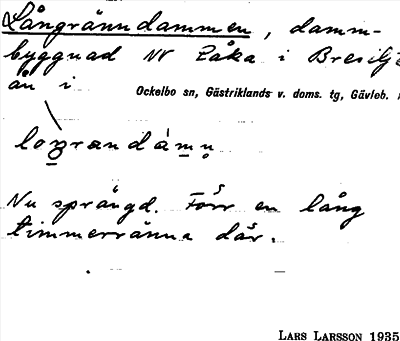 Långränndammen, damm-
byggnad NV Påka i Bresilje
ån i
Ockelbo sn, Gästriklands v. doms. tg, Gävleb.
Nu sprängd. Förr en lång
timmerränna där.
LARS LARSSON 1935